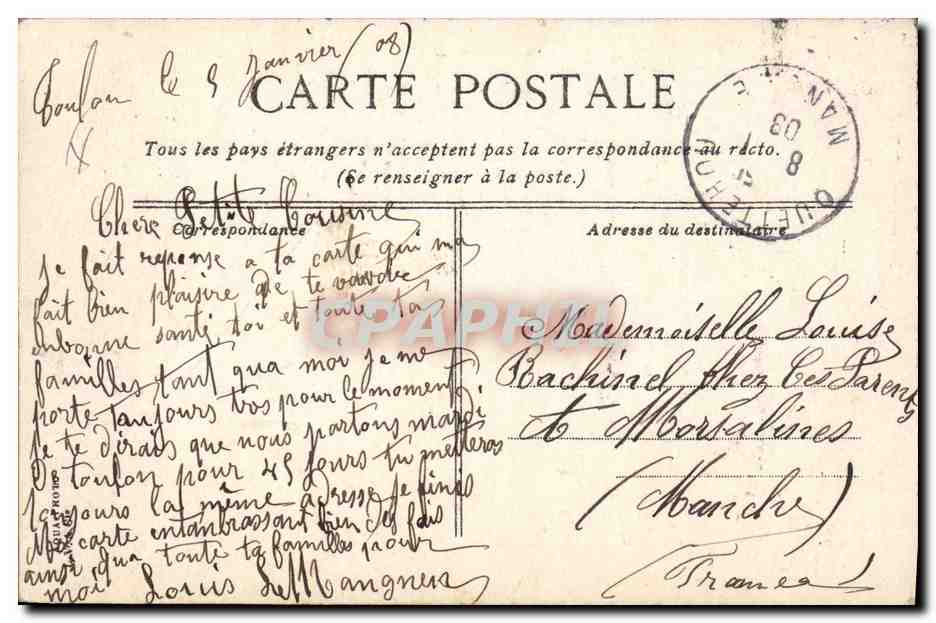 Toulon le 5 janvier (08)
CARTE POSTALE
Tous les pays étrangers n'acceptent pas la correspondance au recto.
(Se renseigner à la poste.)
QUETTEHOU MANCHE
8 1 08
Correspondance
Adresse du destinataire
Chere Petite Cousine
je fait reponse a ta carte qui ma
fait bien plaisire de te
enbonne santé toi et toute ta
familles tant qua moi je me
porte toujours tros pour le moment
je te dirais que nous partons mardi
de toulon pour 45 jours tu metteras
toujours la même adresse je finis
Ma carte entanbrassant bien des fois
ainsi qua toute ta familles pour
moi Louis
Mademoiselle Louise
Rachinel chez Ces Parents
à Morsalines
(Manche)
France
CPAPHIL